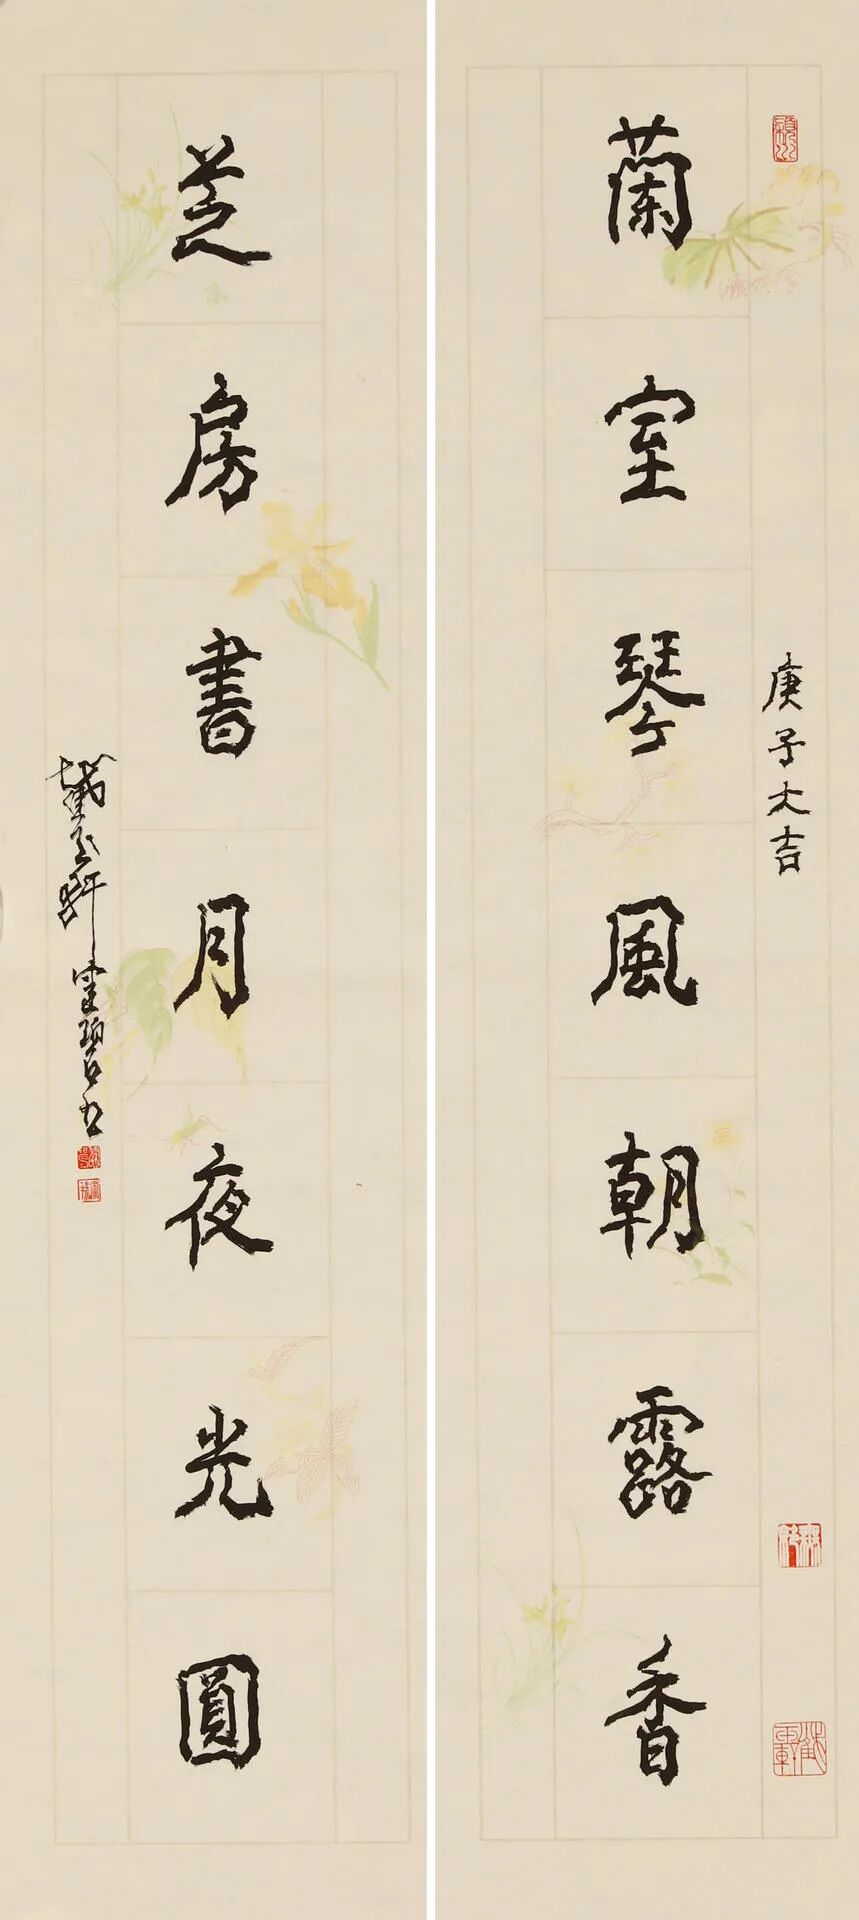 蘭室琴風朝露香
庚子大吉
芝房書月夜光圓